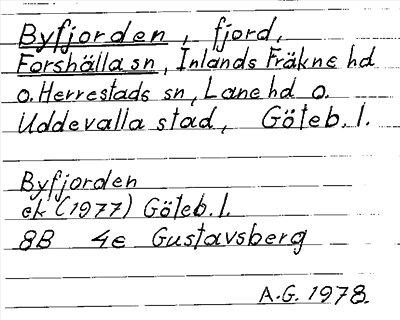 Byfjorden, fjord,
Forshälla sn, Inlands Fräkne hd
o. Herrestads sn, Lane hd o.
Uddevalla stad, Göteb. l.
Byfjorden
ek (1977) Göteb. l.
8B 4e Gustavsberg
A.G. 1978.